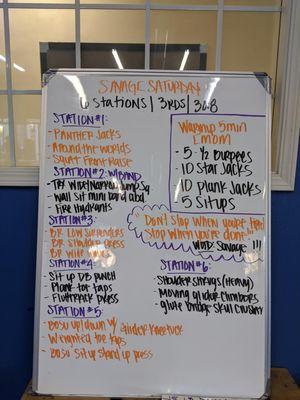 SAVAGE SATURDAY
6 Stations | 3RDS | 30:8
STATION #1:
- PANTHER JACKS
- Around the worlds
- Squat Front Raise
STATION #2: W/BAND
- Wall Sit mini band abd
- Fire Hydrants
STATION #3:
- BR Low Surrenders
- BR Shoulder press
- BR Wide
STATION #4:
- Sit up DB punch
- Plank toe taps
- Flutterkick press
STATION #5:
- Bosu up/down w/ Glider Knee tuck
- Weighted toe taps
- Bosu Sit up stand up press
Warmup 5min
EMOM
- 5 - 1/2 Burpees
- 10 Star Jacks
- 10 plank Jacks
- 5 Situps
"Don't Stop when you're tired
Stop when you're done."
WORD: Savages !!!
STATION #6:
- Shoulder shrugs (Heavy)
- Moving glider climbers
- glute bridge skull crusher